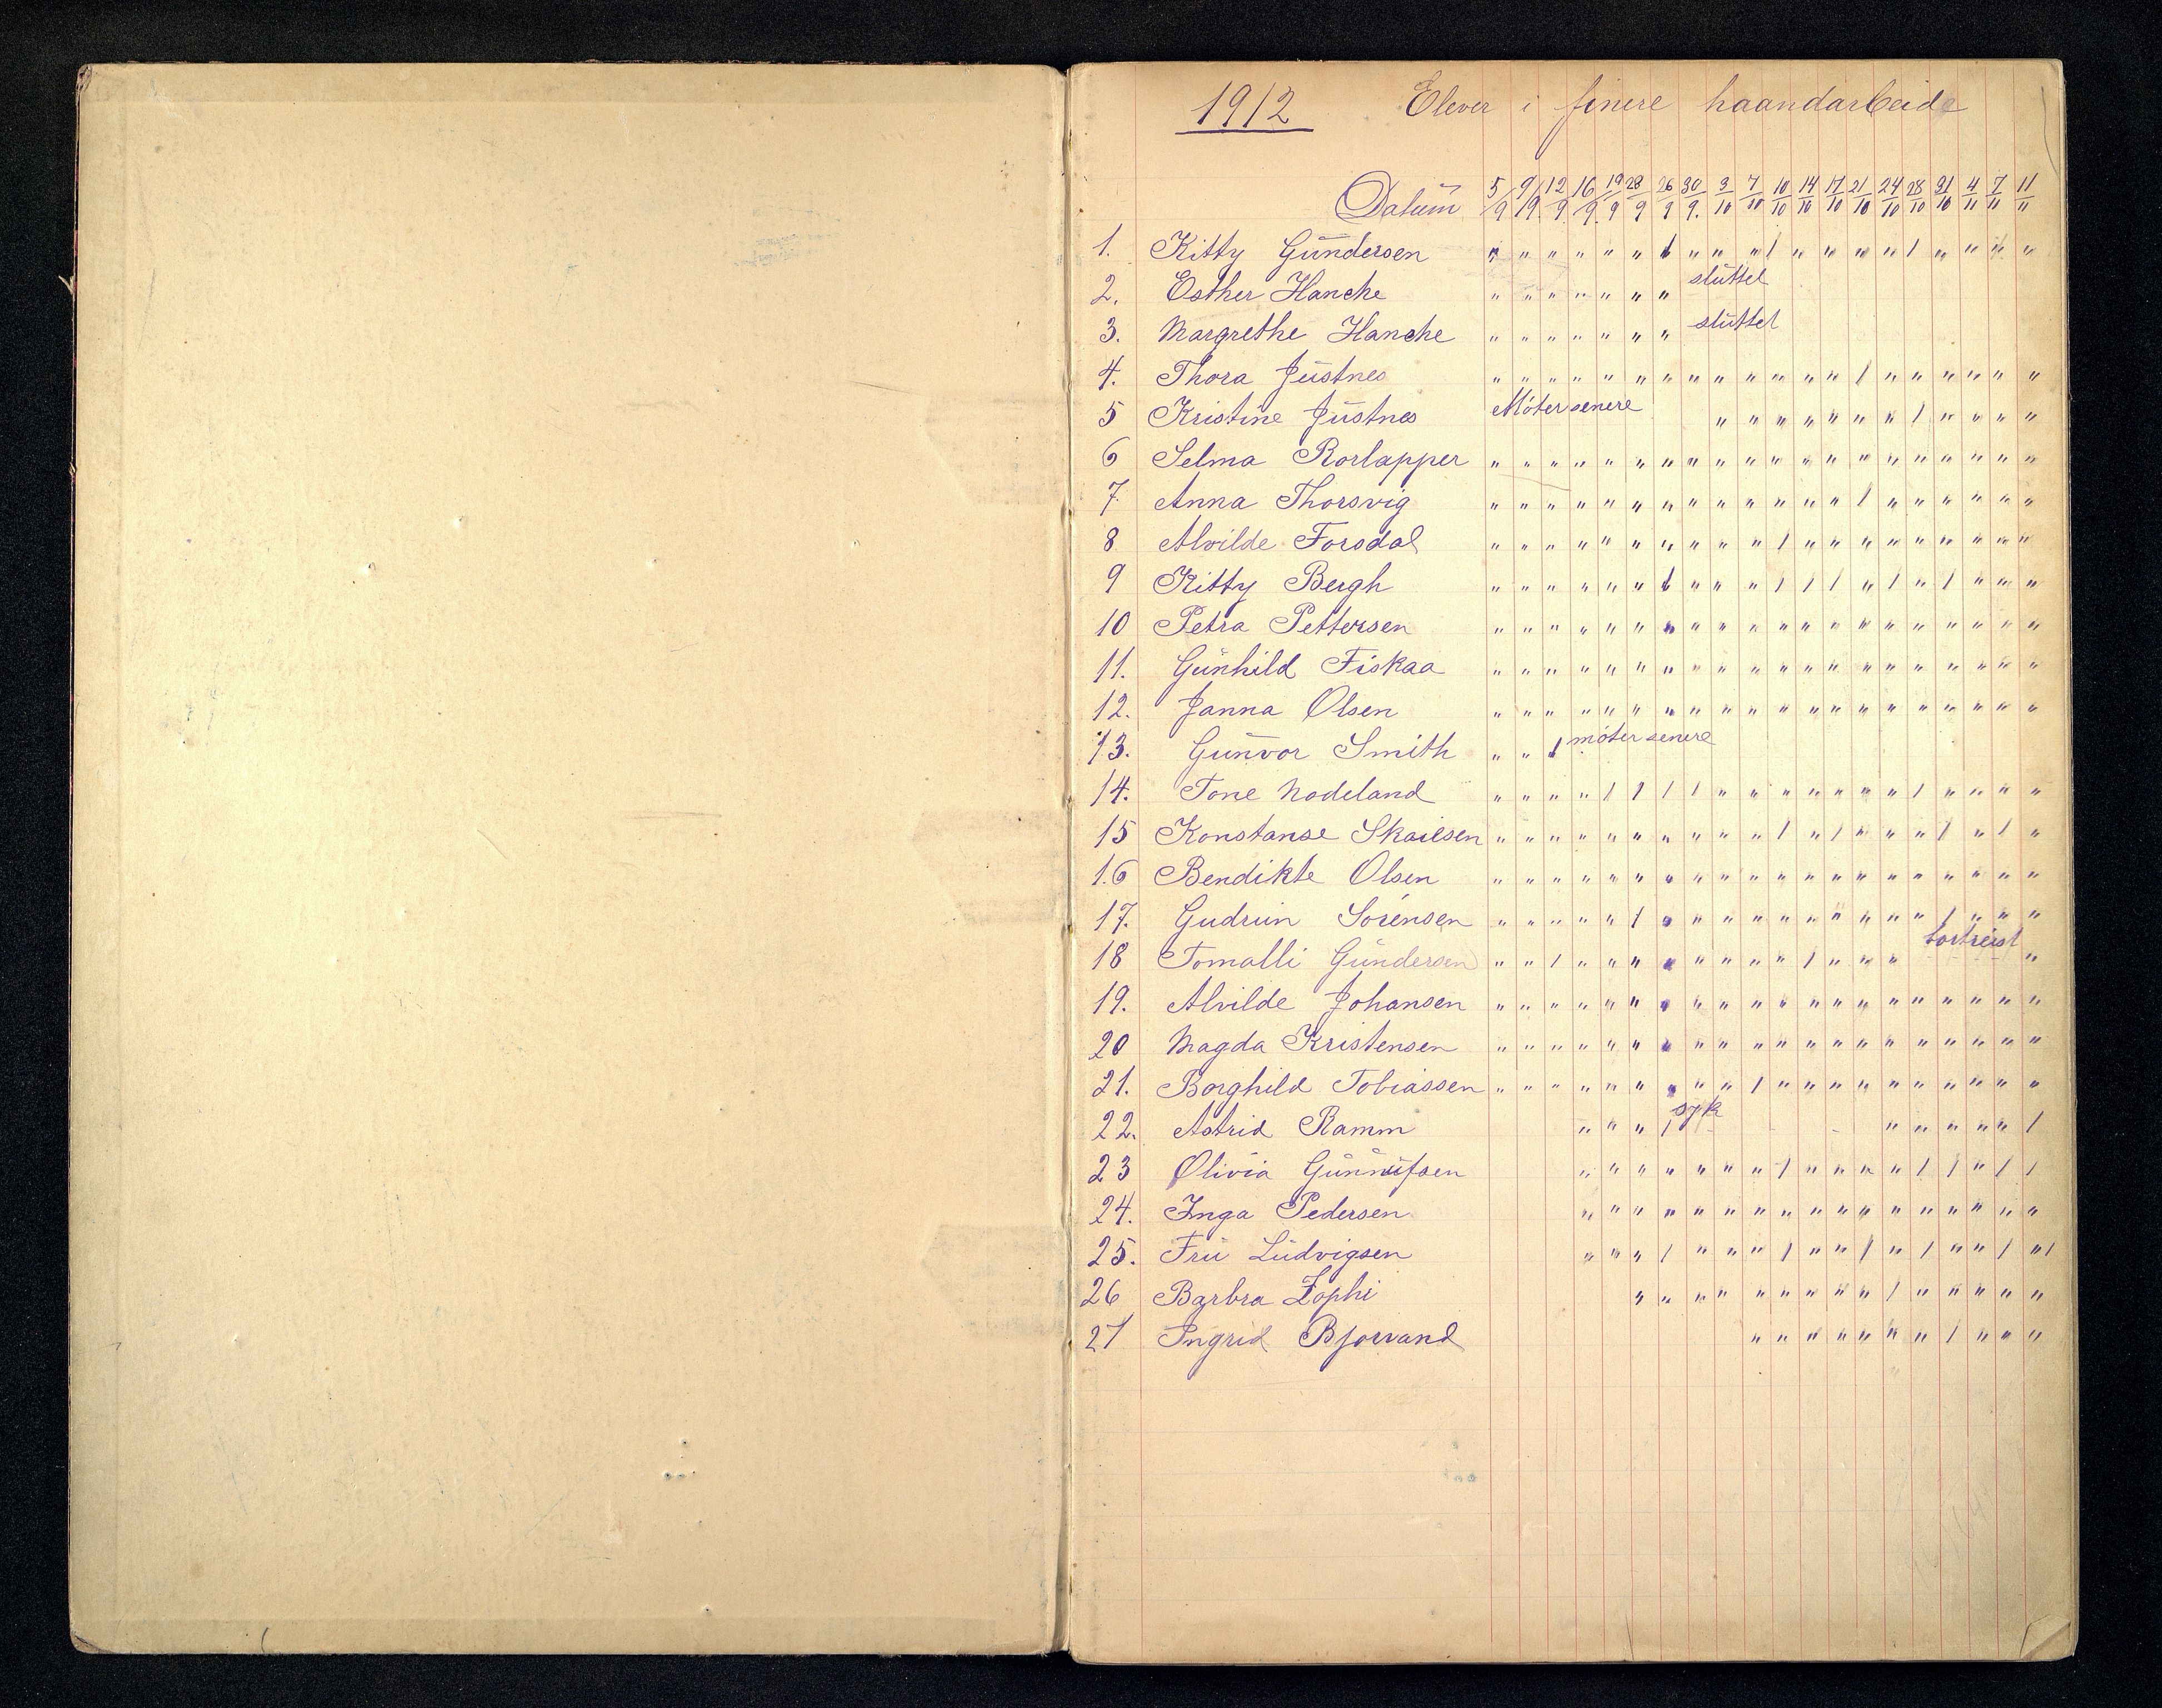 1912 Elever i finere haandarbeide
Datum 5/9 9/9 12/9 16/9 19/9 23/9 26/9 30/9. 3/10 7/10 10/10 14/10 17/10 21/10 24/10 28/10 31/10 4/11 7/11 11/11
1. Kitty Gundersen " " " " " " 1 " " " 1 " " " " 1 " " " "
2. Esther Hanche " " " " " " " sluttet
3. Margrethe Hanche " " " " " " " sluttet
4. Thora Justnes " " " " " " " " " " " " " 1 " " " " " "
5 Kristine Justnes Möter senere " " " " " " " 1 " " " "
6 Selma Rorlapper " " " " " " " " " " " " " " " " " " " "
7. Anna Thorsvig " " " " " " " " " " " " " 1 " " " " " "
8 Alvilde Forsdal " " " " " " " " " " 1 " " " " " " " " "
9 Kitty Bergh " " " " " " 1 " " " 1 1 1 " 1 " 1 " " "
10 Petra Pettersen " " " " " " " " " " " " " " " " " " " "
11. Gunhild Fiskaa " " " " " " " " " " " " " " " " " " " "
12. Janna Olsen " " " " " " " " " " " " " " " " " " " "
13. Gunvor Smith " " 1 möter senere
14. Tone Nodeland " " " " 1 1 1 1 " " " " " " " 1 " " " "
15 Konstanse Skailsen " " " " " " " " " " 1 " 1 " " " 1 " 1 "
16 Bendikte Olsen " " " " " " " " " " " " " " " " " " " "
17. Gudrun Sörensen " " " " " 1 " " " " " " " " " " 1 " " "
18 Tomalli Gundersen " " 1 " " " " " " " " 1 " " " bortreist "
19. Alvilde Johansen " " " " " " " " " " " " " " " " " " " "
20 Magda Kristensen " " " " " " " " " " " " " " " " " " " "
21. Borghild Tobiassen " " " " " " " " " 1 " " " " " " " " " "
22. Astrid Ramm " " " 1 syk " " " " " 1
23 Olivia Gunnufsen " " " " " " " 1 " " " " 1 1 " 1 1
24. Inga Pedersen " " " " " " " " " " " " " " " " "
25. Fru Ludvigsen " " " 1 " " " 1 " " 1 " 1 " " 1 " 1
26 Barbra Zophi " " " " " " " " " 1 " " " " "
27 Ingrid Bjorvand " " " " " " " 1 " " "